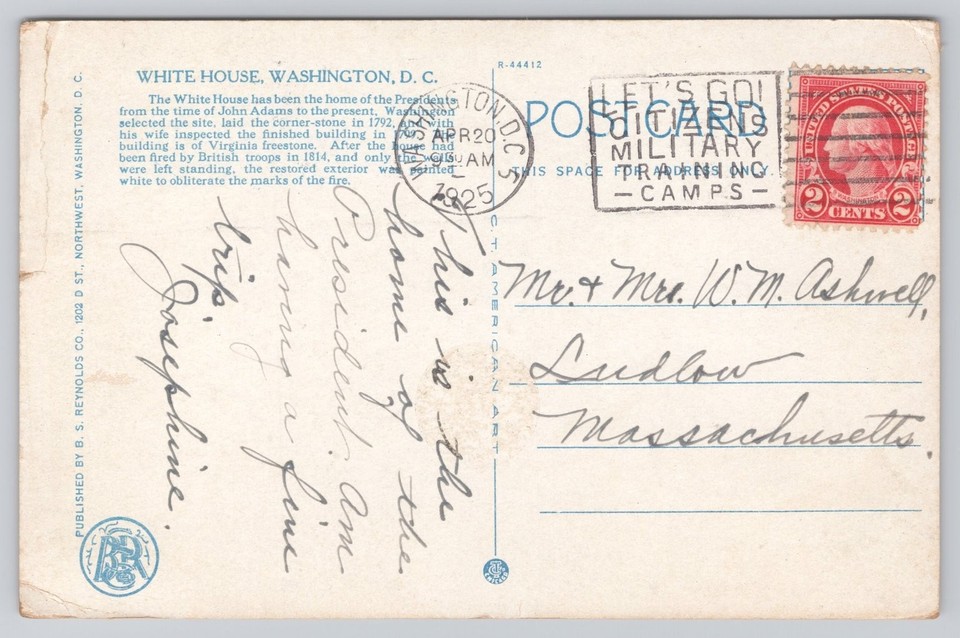 R-44412
WHITE HOUSE, WASHINGTON, D. C.
The White House has been the home of the Presidents
from the time of John Adams to the present. Washington
selected the site, laid the corner-stone in 1792, and with
his wife inspected the finished building in 1799. The
building is of Virginia freestone. After the house had
been fired by British troops in 1814, and only the walls
were left standing, the restored exterior was painted
white to obliterate the marks of the fire.
POST CARD
THIS SPACE FOR ADDRESS ONLY.
WASHINGTON, D.C.
APR 20
AM
1925
LET'S GO!
CITIZENS
MILITARY
TRAINING
CAMPS
UNITED STATES POSTAGE
WASHINGTON
2 CENTS 2
This is the
home of the
President. Am
having a fine
trip
Josephine.
Mr. & Mrs. W. M. Ashwell,
Ludlow
Massachusetts.
C. T. AMERICAN ART
PUBLISHED BY B. S. REYNOLDS CO., 1202 D ST., NORTHWEST, WASHINGTON, D. C.